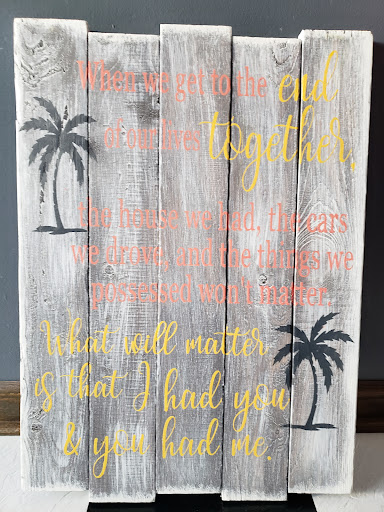 When we get to the end
of our lives together,
the house we had, the cars
we drove, and the things we
possessed won't matter.
What will matter
is that I had you
& you had me.